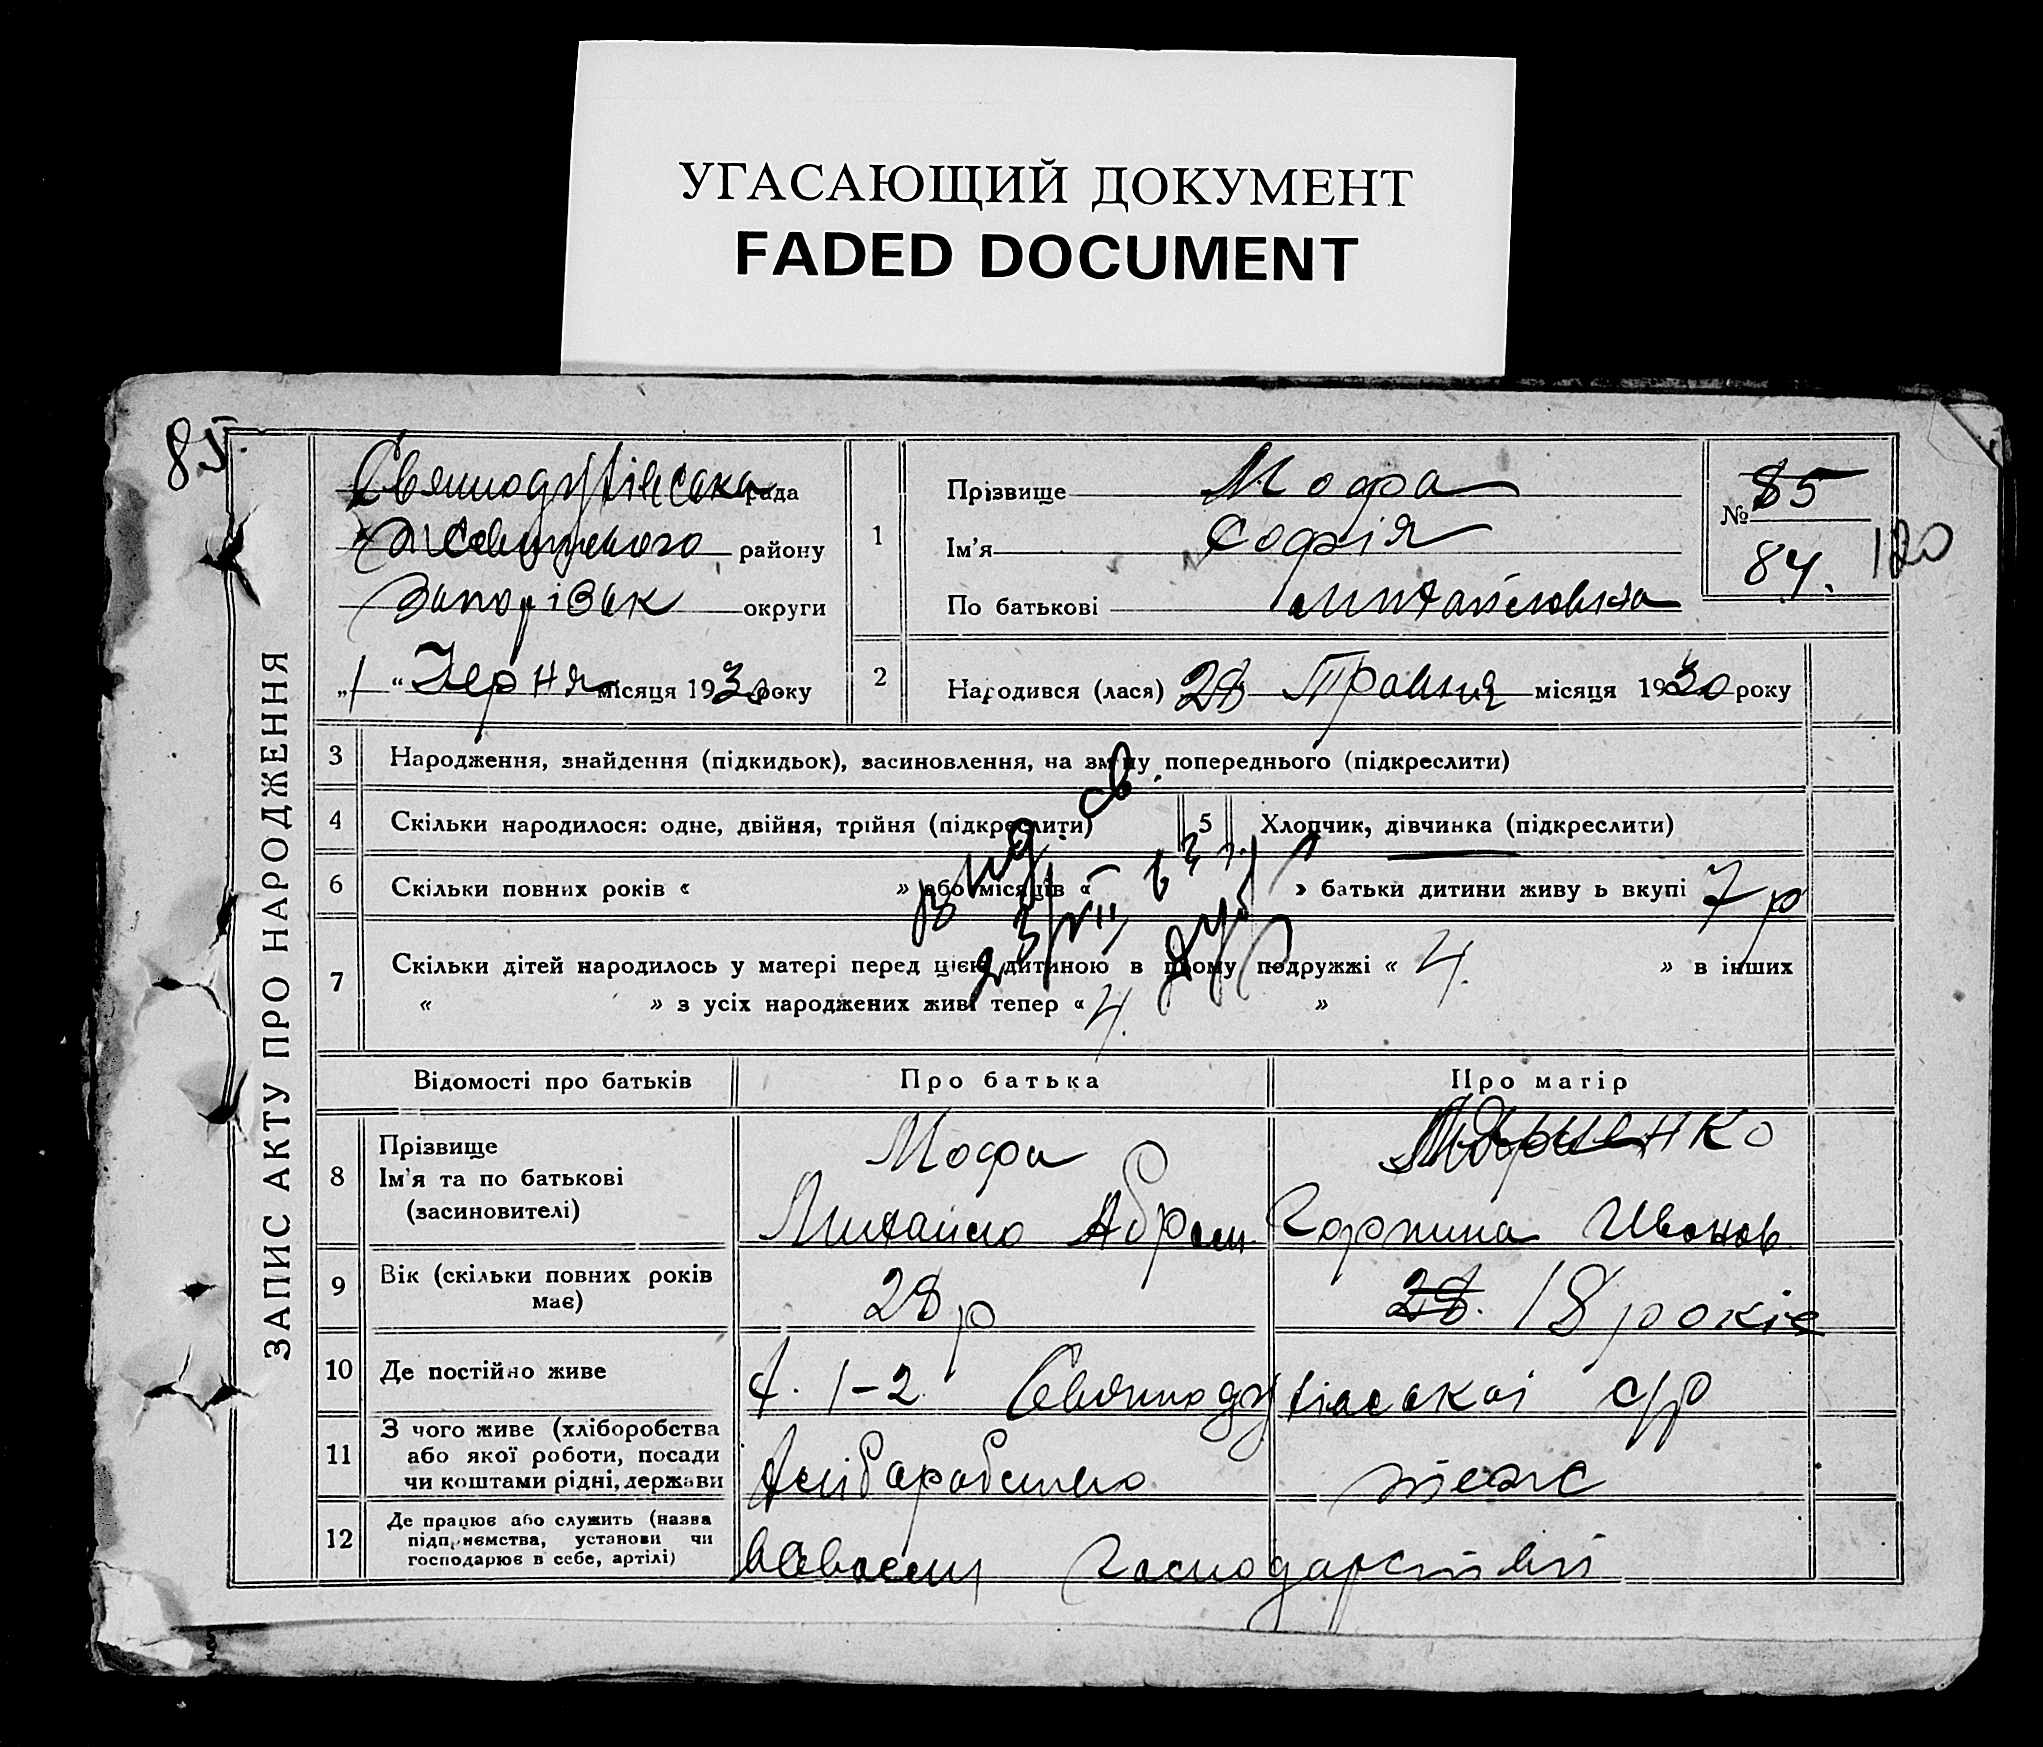 УГАСАЮЩИЙ ДОКУМЕНТ
FADED DOCUMENT
85.
ЗАПИС АКТУ ПРО НАРОДЖЕННЯ
Святодухівська рада
району
Запоріжж округи
„1“ Черня місяця 1930 року
1
Прізвище Мофа
Ім'я Софія
По батькові Михайловна
№ 85
84.
120
2
Народився (лася) 28 Травня місяця 1930 року
3 Народження, знайдення (підкидьок), засиновлення, на зміну попереднього (підкреслити)
4 Скільки народилося: одне, двійня, трійня (підкреслити)
5 Хлопчик, дівчинка (підкреслити)
6 Скільки повних років « » або місяців « » батьки дитини живуть вкупі 7 р
7 Скільки дітей народилось у матері перед цією дитиною в цьому подружжі « 4. » в інших
« » з усіх народжених живі тепер « 4. »
Відомості про батьків
Про батька
Про матір
8
Прізвище
Ім'я та по батькові
(засиновителі)
Мофа
Михайло Абрам
Горпина Иванов
9 Вік (скільки повних років
має)
28 р
28. 18 років
10 Де постійно живе
х. 1-2 Святодухівської с/р
11 З чого живе (хліборобства
або якої роботи, посади
чи коштами рідні, держави
Хліборобство
теж
12 Де працює або служить (назва
підприємства, установи чи
господарює в себе, артілі)
в своєму господарстві